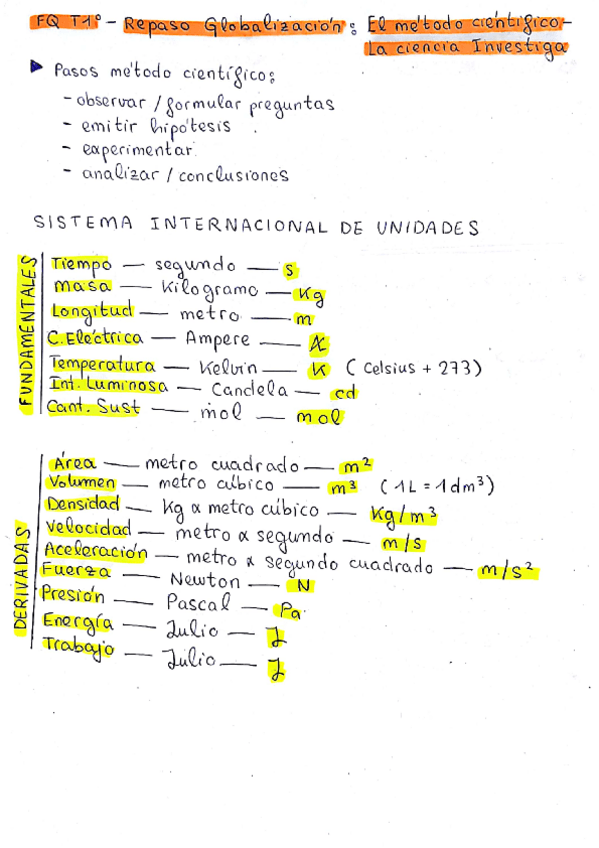 FQ T1º - Repaso Globalización: El método científico -
La ciencia Investiga
▶ Pasos método científico:
- observar / formular preguntas
- emitir hipótesis
- experimentar
- analizar / conclusiones
SISTEMA INTERNACIONAL DE UNIDADES
FUNDAMENTALES
Tiempo — segundo — s
masa — Kilogramo — Kg
Longitud — metro — m
C.Eléctrica — Ampere — A
Temperatura — Kelvin — K (Celsius + 273)
Int. Luminosa — Candela — cd
Cant. Sust — mol — mol
DERIVADAS
Área — metro cuadrado — m²
Volumen — metro cúbico — m³ (1L = 1dm³)
Densidad — Kg x metro cúbico — Kg/m³
Velocidad — metro x segundo — m/s
Aceleración — metro x segundo cuadrado — m/s²
Fuerza — Newton — N
Presión — Pascal — Pa
Energía — Julio — J
Trabajo — Julio — J